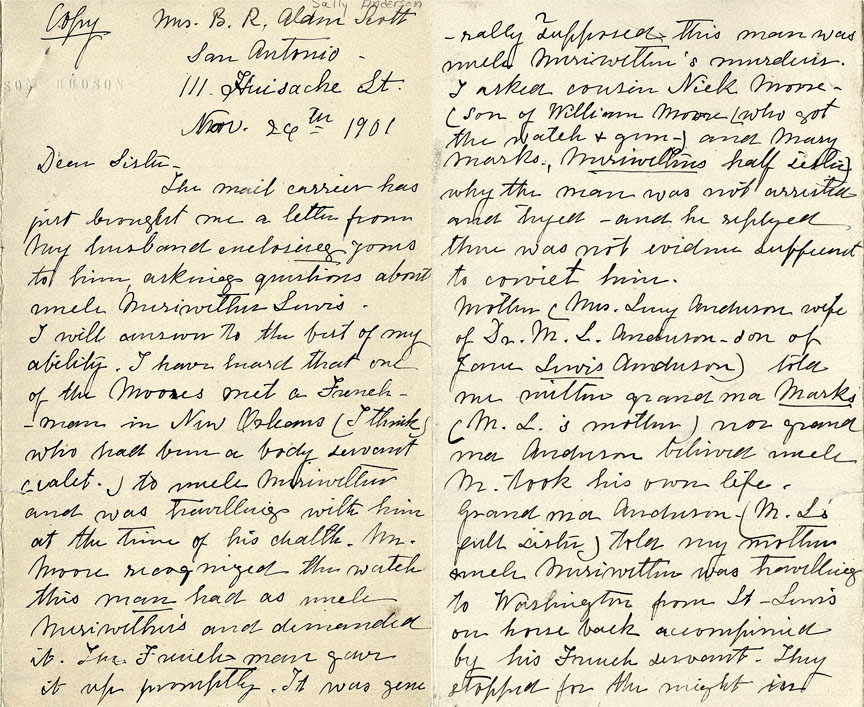 Sally Anderson
Copy Mrs. B. R. Alden Scott
San Antonio -
111. Huisache St.
SON HUDSON
Nov. 26th 1901
Dear Sister -
The mail carrier has
just brought me a letter from
my husband enclosing yours
to him, asking questions about
uncle Meriwether Lewis.
I will answer to the best of my
ability. I have heard that one
of the Moores met a French-
-man in New Orleans (I think)
who had been a body servant
(valet.) to uncle Meriwether
and was travelling with him
at the time of his death. Mr.
Moore recognized the watch
this man had as uncle
Meriwithir's and demanded
it. The French man gave
it up promptly. It was gene
-rally supposed this man was
uncle Meriwether's murderer.
I asked cousin Nick Moore -
(son of William Moore (who got
the watch & gun-) and Mary
Marks., Meriwethers half sister)
why the man was not arrested
and tryed - and he replyed
there was not evidence suffecent
to convict him.
Mother (Mrs. Lucy Anderson wife
of Dr. M. L. Anderson - son of
Jane Lewis Anderson) told
me neither grand ma Marks
(M. L.'s mother) nor grand
ma Anderson believed uncle
M. took his own life.
Grand ma Anderson - (M. L's
full sister) told my mother
uncle Meriwether was travelling
to Washington from St - Lewis
on horse back accompinied
by his French servant. They
stopped for the night in